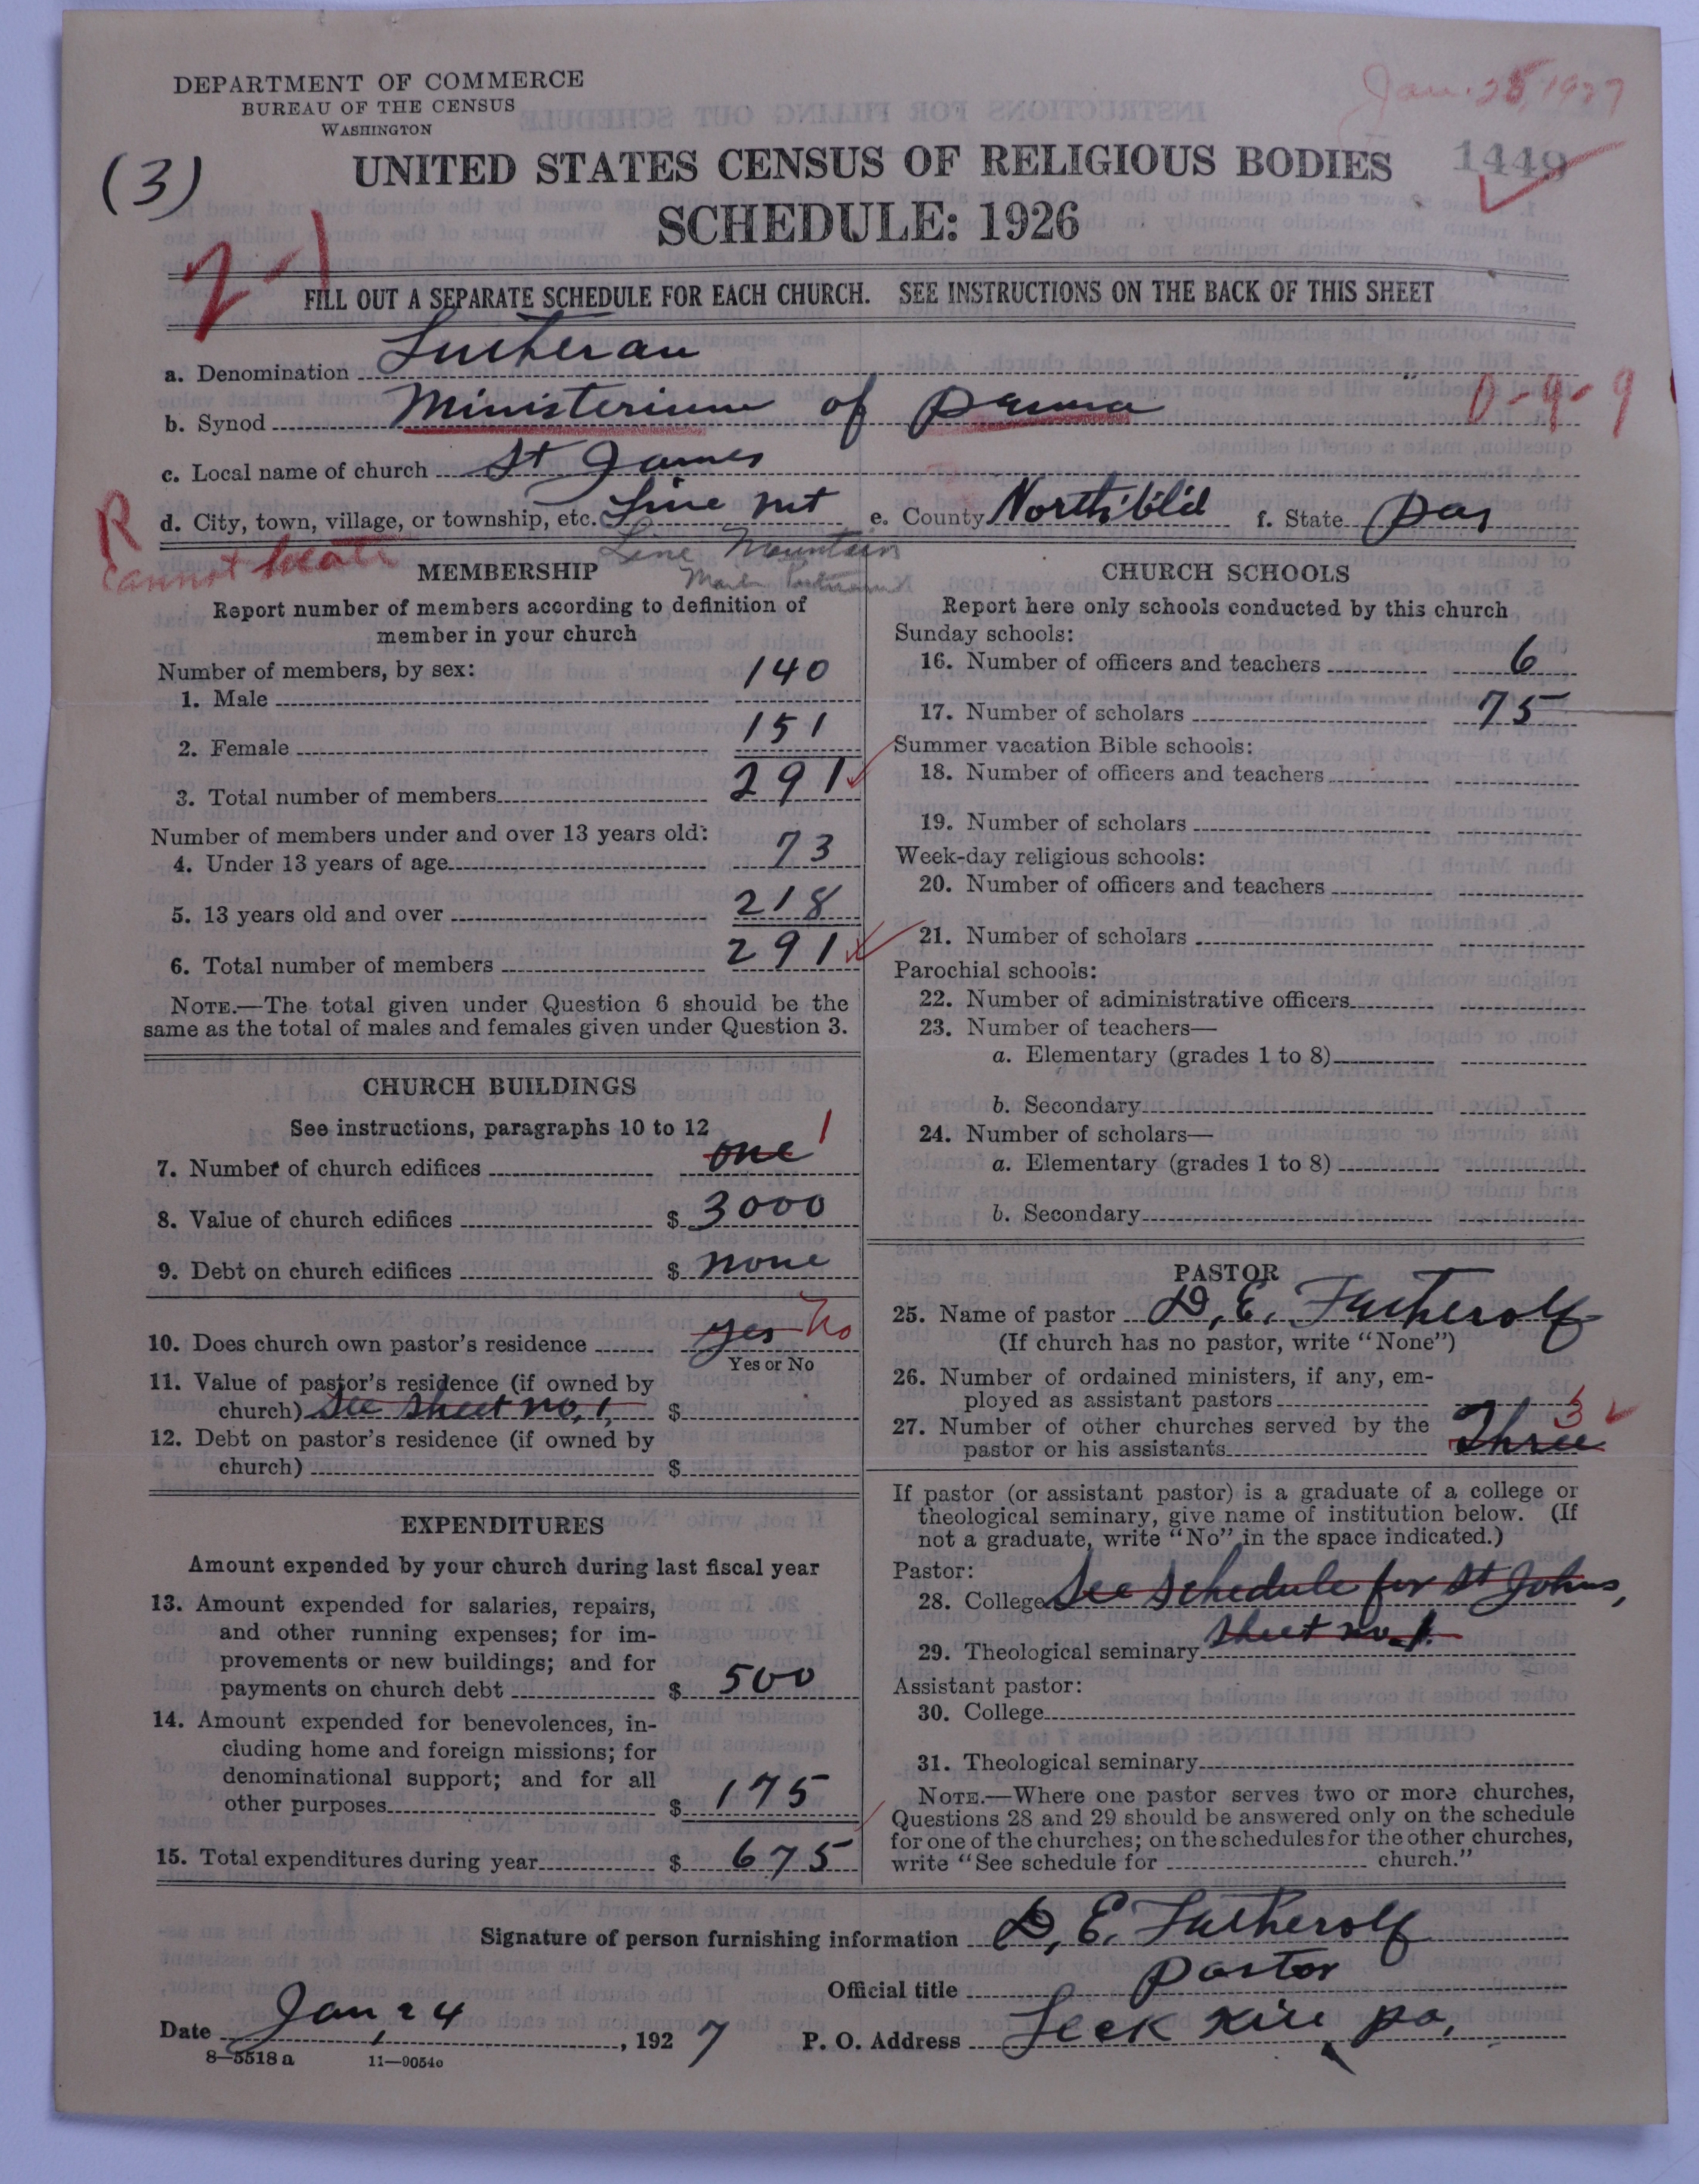 DEPARTMENT OF COMMERCE
BUREAU OF THE CENSUS
WASHINGTON
Jan. 25, 1927
1449
(3)
UNITED STATES CENSUS OF RELIGIOUS BODIES
SCHEDULE: 1926
2-1
FILL OUT A SEPARATE SCHEDULE FOR EACH CHURCH. SEE INSTRUCTIONS ON THE BACK OF THIS SHEET
a. Denomination Lutheran
b. Synod Ministerium of Penna 0-9-9
c. Local name of church St James
d. City, town, village, or township, etc. Line Mt e. County North'bl'd f. State Pa
R
Cannot locate
Line Mountain
MEMBERSHIP
Report number of members according to definition of
member in your church
Number of members, by sex:
1. Male 140
2. Female 151
3. Total number of members 291
Number of members under and over 13 years old:
4. Under 13 years of age 73
5. 13 years old and over 218
6. Total number of members 291
NOTE.—The total given under Question 6 should be the
same as the total of males and females given under Question 3.
CHURCH BUILDINGS
See instructions, paragraphs 10 to 12
7. Number of church edifices one 1
8. Value of church edifices $ 3000
9. Debt on church edifices $ none
10. Does church own pastor's residence yes No
Yes or No
11. Value of pastor's residence (if owned by
church) See sheet no. 1, $
12. Debt on pastor's residence (if owned by
church) $
EXPENDITURES
Amount expended by your church during last fiscal year
13. Amount expended for salaries, repairs,
and other running expenses; for im-
provements or new buildings; and for
payments on church debt $ 500
14. Amount expended for benevolences, in-
cluding home and foreign missions; for
denominational support; and for all
other purposes $ 175
15. Total expenditures during year $ 675
CHURCH SCHOOLS
Report here only schools conducted by this church
Sunday schools:
16. Number of officers and teachers 6
17. Number of scholars 75
Summer vacation Bible schools:
18. Number of officers and teachers
19. Number of scholars
Week-day religious schools:
20. Number of officers and teachers
21. Number of scholars
Parochial schools:
22. Number of administrative officers
23. Number of teachers—
a. Elementary (grades 1 to 8)
b. Secondary
24. Number of scholars—
a. Elementary (grades 1 to 8)
b. Secondary
PASTOR
25. Name of pastor D, E, Fetherolf
(If church has no pastor, write "None")
26. Number of ordained ministers, if any, em-
ployed as assistant pastors
27. Number of other churches served by the
pastor or his assistants Three 3
If pastor (or assistant pastor) is a graduate of a college or
theological seminary, give name of institution below. (If
not a graduate, write "No" in the space indicated.)
Pastor:
28. College See schedule for St Johns,
sheet no. 1.
29. Theological seminary
Assistant pastor:
30. College
31. Theological seminary
NOTE.—Where one pastor serves two or more churches,
Questions 28 and 29 should be answered only on the schedule
for one of the churches; on the schedules for the other churches,
write "See schedule for church."
Signature of person furnishing information D, E, Fetherolf
Official title Pastor
Date Jan, 24, 1927 P. O. Address Leck Kill Pa,
8—5518 a 11—9054o